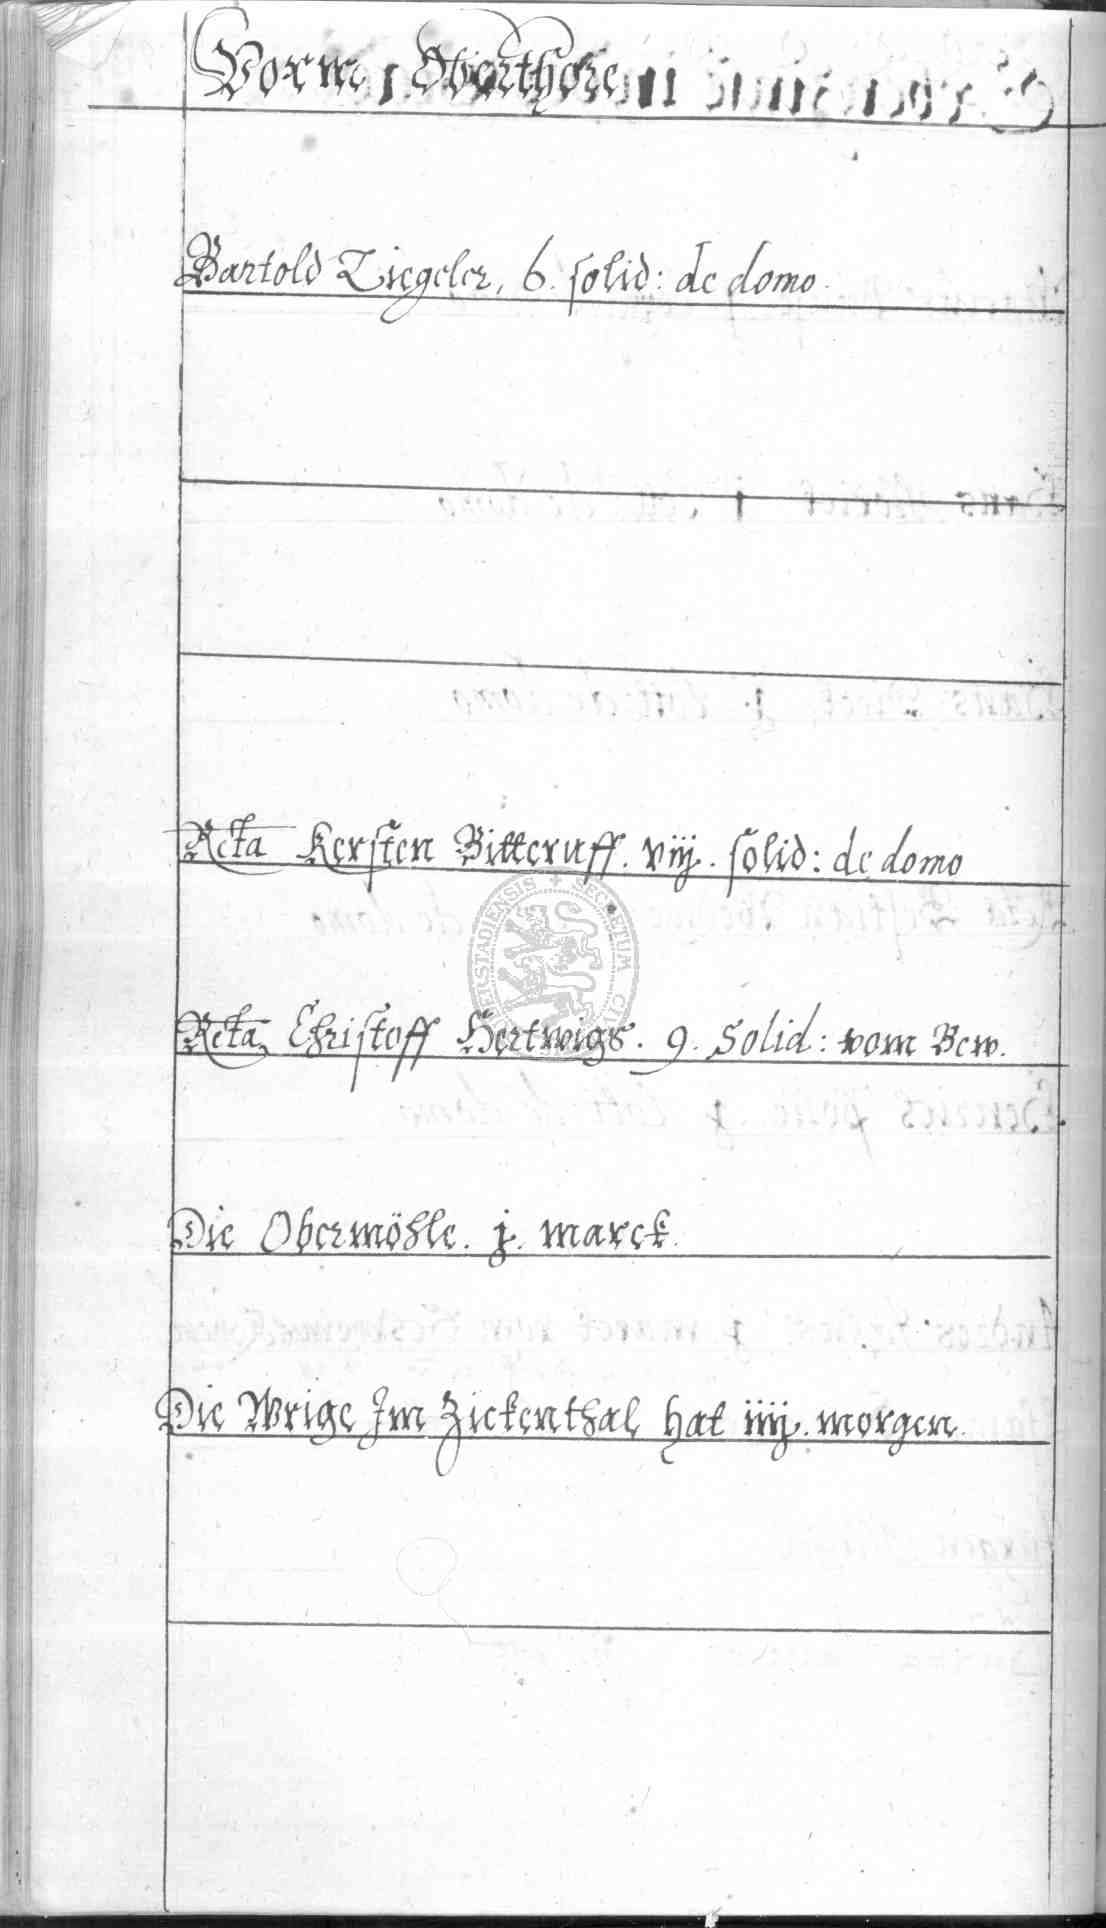 Vorm Oberthore
Bartold Ziegeler, 6. solid: de domo.
Relta Kersten Bitteruff. viij. solid: de domo
Relta Christoff Hertwigs. 9. Solid: vom Bew.
Die Obermöhle. j. marck.
Die Wrige Im Zickenthal hat iiij. morgen.